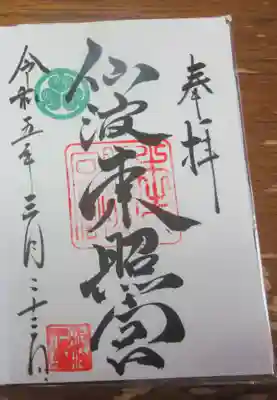 奉拝
仙波東照宮
令和五年三月二十二日